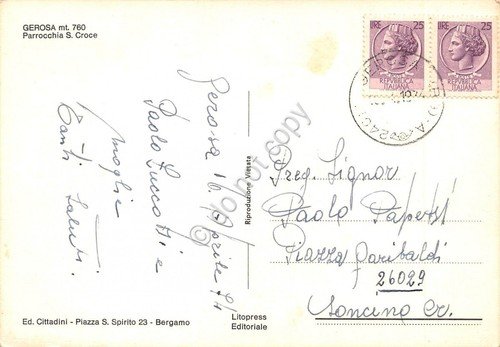 GEROSA mt. 760
Parrocchia S. Croce
LIRE 25
REPUBBLICA
ITALIANA
LIRE 25
REPUBBLICA
ITALIANA
Gerosa 16 Aprile 74
Paolo Lucca Ti e
moglie
Tanti saluti.
do not copy
Riproduzione Vietata
Preg. Signor
Paolo
Piazza Garibaldi
26029
Soncino Cr.
Ed. Cittadini - Piazza S. Spirito 23 - Bergamo
Litopress
Editoriale